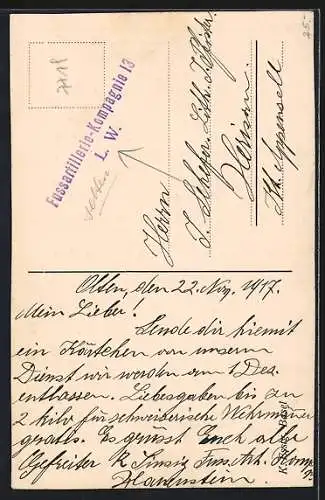 25.-
7218
Fussartillerie-Kompagnie 13
L. W.
selten
Herrn
J. Lith.
Herisau.
Kt. Appenzell
Olten, den 22. Nov. 1917.
Mein Lieber.
Sende dir hiemit
ein Kärtchen von unserm
Dienst wir werden am 1 Dez.
entlassen. Liebesgaben bis zu
2 kilo für schweizerische Wehrmänner
gratis. Es grüsst Euch alle
Gefreiter K. Fuss. Art. Komp. 13
Hauenstein.
Basel